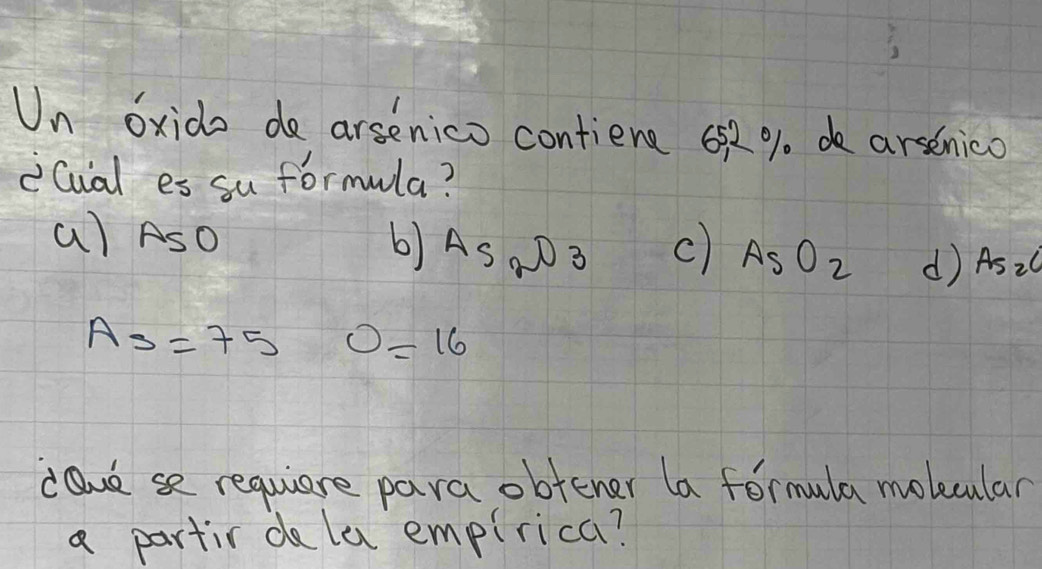 Un óxido de arsénico contiene 65,2 % de arsénico
¿Cuál es su fórmula?
a) AsO b) As₂O₃ c) AsO₂ d) As₂O
As = 75 O = 16
¿Qué se requiere para obtener la fórmula molecular
a partir de la empírica?